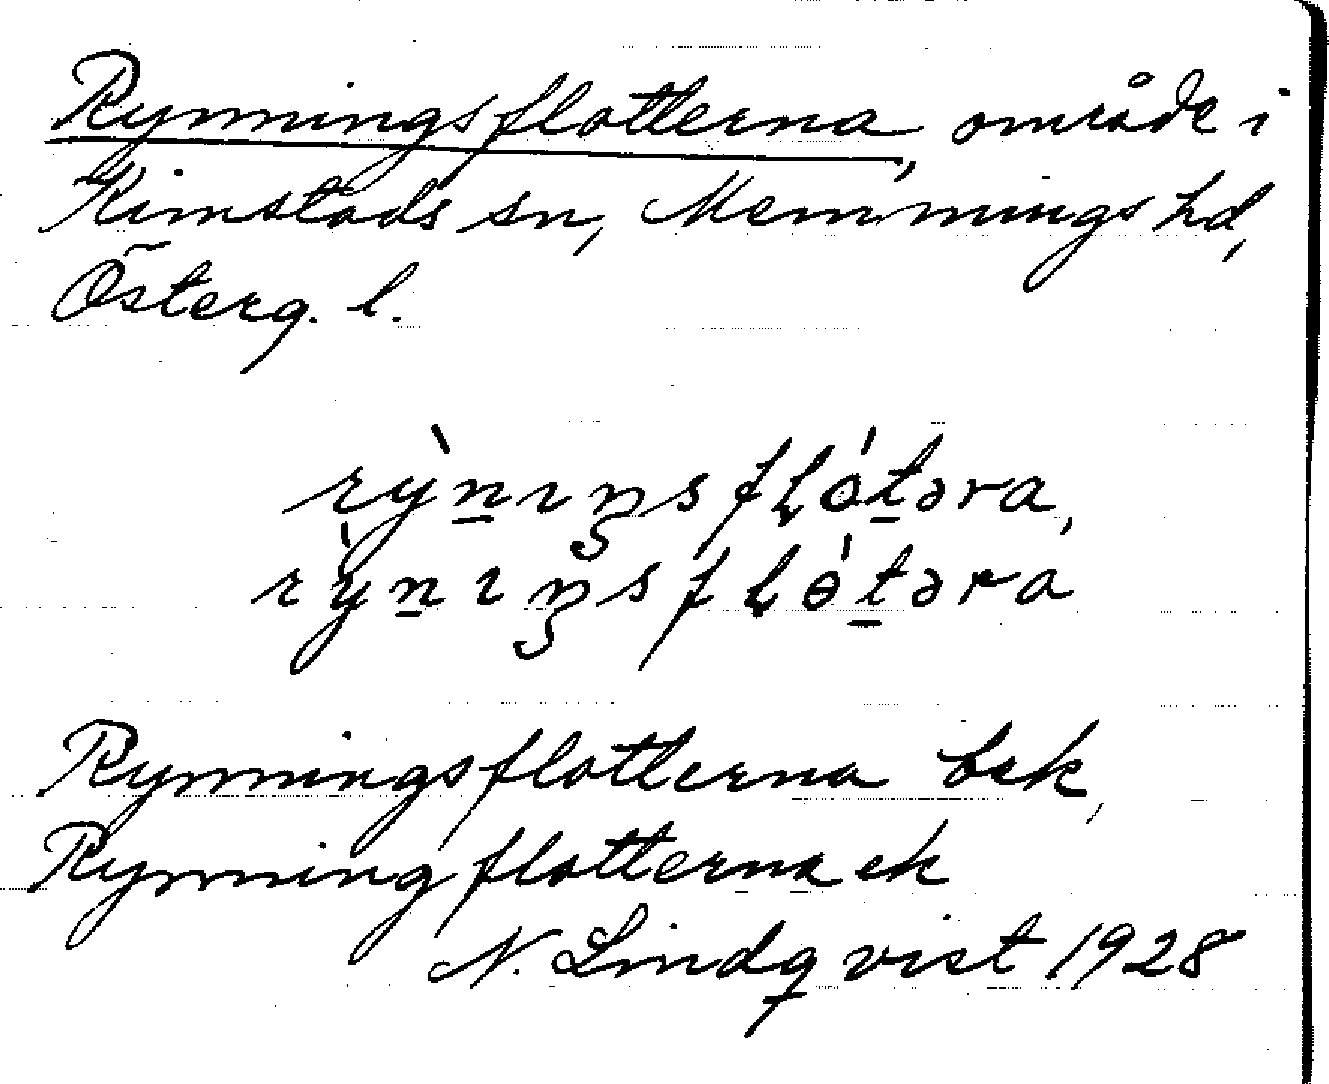 Rynningsflotterna, område i
Kimstads sn, Memmings hd,
Österg. l.
rỳn̲ıŋsflɵ́t̲əra,
rỳn̲ıŋsflɵ́t̲əra
Rynningsflotterna bek,
Rynningflotterna ek
N. Lindqvist 1928